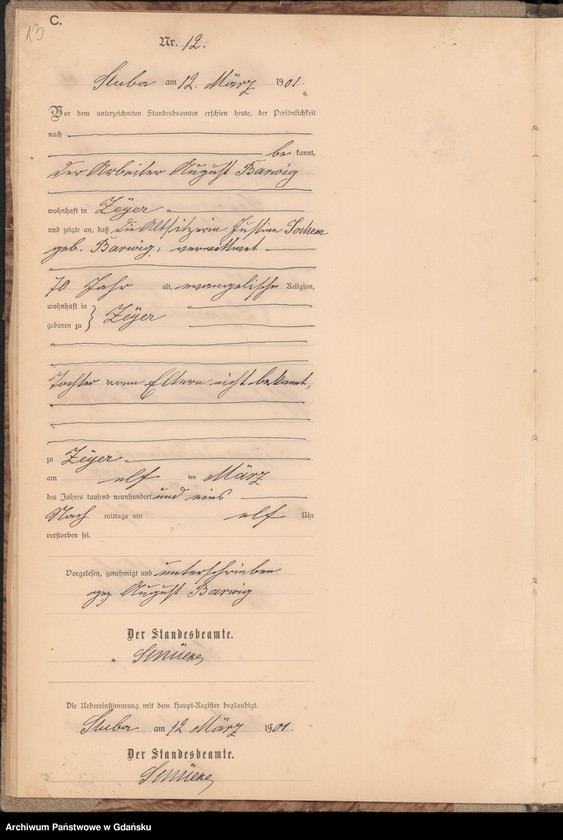 C.
13
Nr. 12.
Stuba am 12. März 1901.
Vor dem unterzeichneten Standesbeamten erschien heute, der Persönlichkeit
nach
be kannt,
der Arbeiter August Barwig
wohnhaft in Zeyer
und zeigte an, daß die Altsitzerin Justine
geb. Barwig, verwittwet
70 Jahr alt, evangelische Religion,
wohnhaft in
geboren zu } Zeyer
Tochter von Eltern nicht bekannt,
zu Zeyer
am elf ten März
des Jahres tausend neunhundert und eins
Nach mittags um elf Uhr
verstorben sei.
Vorgelesen, genehmigt und unterschrieben
gez August Barwig
Der Standesbeamte.
Die Uebereinstimmung mit dem Haupt-Register beglaubigt.
Stuba am 12 März 1901.
Der Standesbeamte.
Archiwum Państwowe w Gdańsku